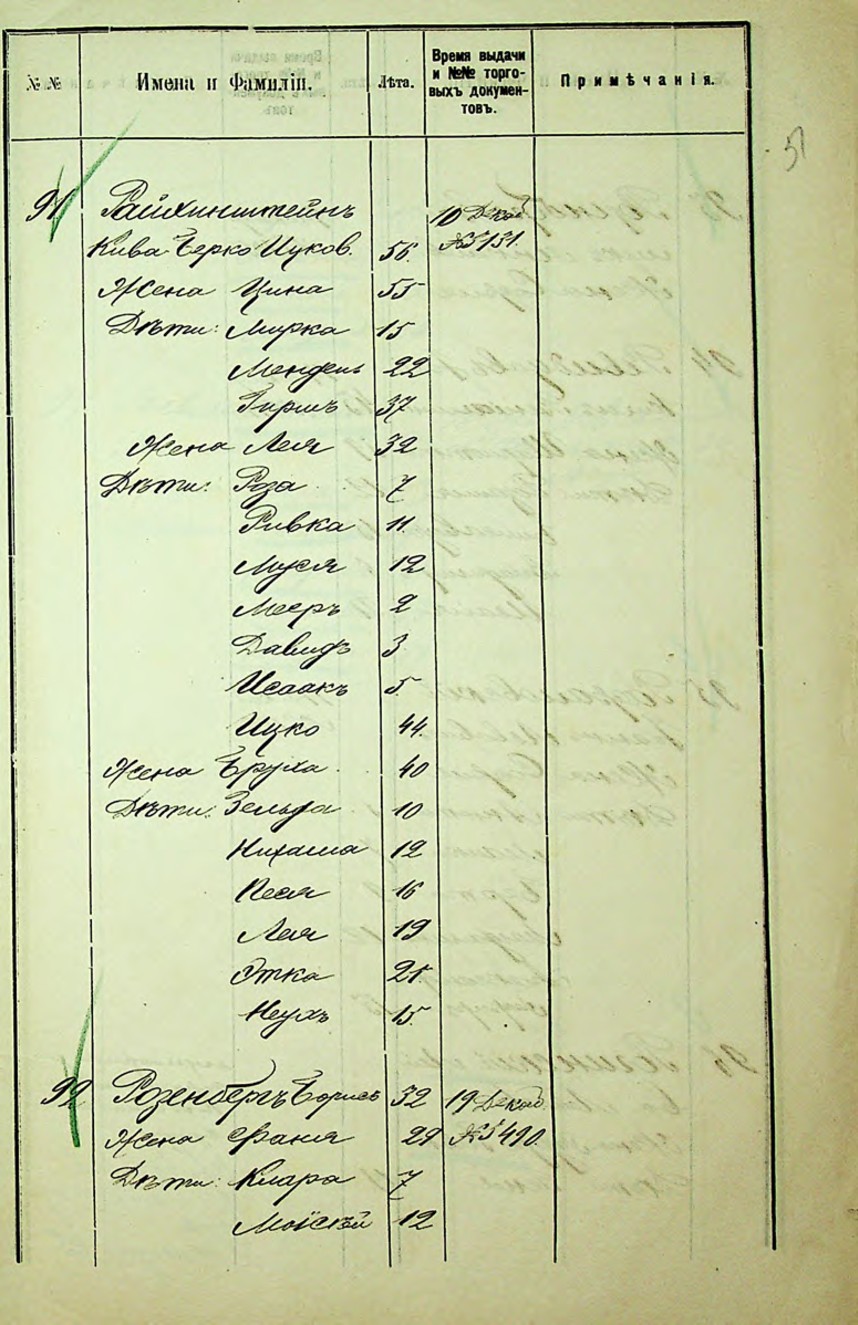 № №
Имена и Фамиліи.
Лѣта.
Время выдачи
и №№ торго-
выхъ докумен-
товъ.
Примѣчанія.
51
91 Райхинштейнъ 10 Декаб
Кива-Берко Ицков. 56. № 5131.
Жена Цина 55
Дѣти: Мирка 15
Мендель 22
Гиршъ 37
Жена Лея 32
Дѣти: Роза 7
Ривка 11.
Муся 12
Мееръ 2
Давидъ 3
Исаакъ 5.
Ицко 44.
Жена Бруха 40
Дѣти: Зельда 10
Нихама 12
Песя 16
Лея 19
Этка 21
Неухъ 15
92 Розенбергъ Борисъ 32 19 Декаб
Жена Фаня 29 № 5490.
Дѣти: Клара 7
Моисѣй 12